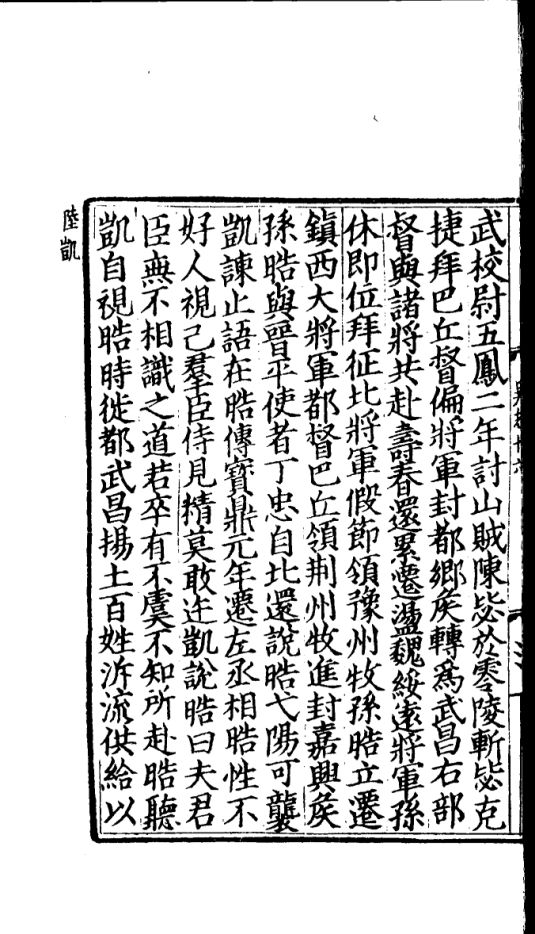 武校尉五鳳二年討山賊陳毖於零陵斬毖克
捷拜巴丘督偏將軍封都鄉矦轉爲武昌右部
督與諸將共赴壽春還累遷盪魏綏遠將軍孫
休即位拜征北將軍假節領豫州牧孫皓立遷
鎮西大將軍都督巴丘領荆州牧進封嘉興矦
孫晧與晉平使者丁忠自北還說晧弋陽可襲
凱諫止語在晧傳寳鼎元年遷左丞相晧性不
好人視己羣臣侍見精莫敢迕凱說晧曰夫君
臣無不相識之道若卒有不虞不知所赴晧聽
凱自視晧時徙都武昌揚土百姓泝流供給以
陸凱